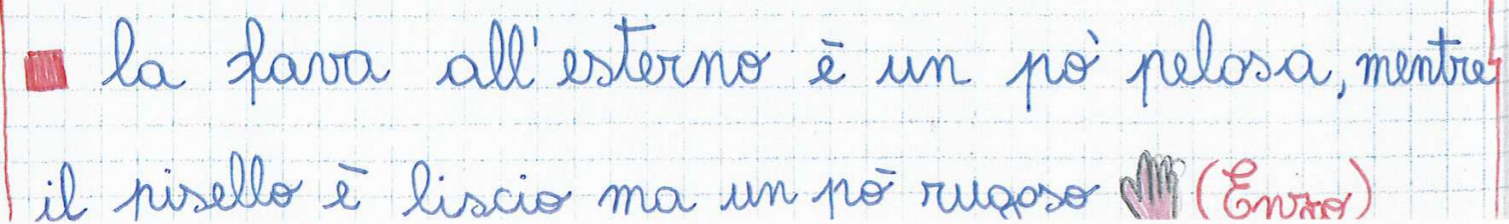 la fava all'esterno è un pò pelosa, mentre
il pisello è liscio ma un pò rugoso (Enzo)